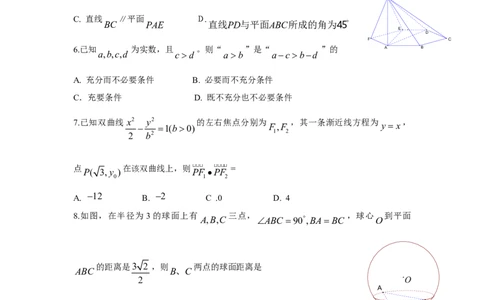 C. 直线 BC ∥平面 PAE D. 直线PD与平面ABC所成的角为45°
6.已知 a,b,c,d 为实数，且 c > d 。则“ a > b ”是“ a − c > b − d ”的
A. 充分而不必要条件 B. 必要而不充分条件
C．充要条件 D. 既不充分也不必要条件
7.已知双曲线 x²/2 − y²/b² = 1(b > 0) 的左右焦点分别为 F₁,F₂ ，其一条渐近线方程为 y = x ，
点 P( 3, y₀) 在该双曲线上，则 PF₁ • PF₂ =
A. −12 B. −2 C .0 D. 4
8.如图，在半径为 3 的球面上有 A,B,C 三点，∠ABC = 90°, BA = BC ，球心 O 到平面
ABC 的距离是 3 2 / 2 ，则 B、C 两点的球面距离是
P
E
C
O
A